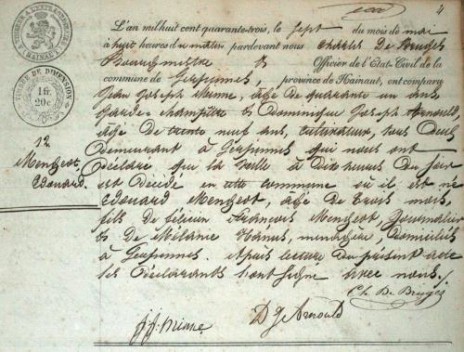 4
L'an mil huit cent quarante-trois, le sept du mois de mai
à huit heures du matin pardevant nous Charles De Bruges
Bourgmestre & Officier de l'État-Civil de la
commune de Gerpinnes, province de Hainaut, ont comparu
Jean Joseph age de quarante un ans
Garde-champêtre & Dominique Joseph Arnould
agé de trente neuf ans, cultivateur, tous deux
demeurant à Gerpinnes qui nous ont
déclaré que la veille à dix heures du soir
est décédé en cette commune où il est né
Edouard Mengeot, agé de trois mois,
fils de François Mengeot, journalier
& de Mélanie Hanus, menagère, domiciliés
à Gerpinnes. Après lecture du présent acte
les déclarants l'ont signé avec nous.
Ch. De Bruges
D J Arnould
12
Mengeot
Edouard.
HAINAUT
TIMBRE DE DIMENSION
20c